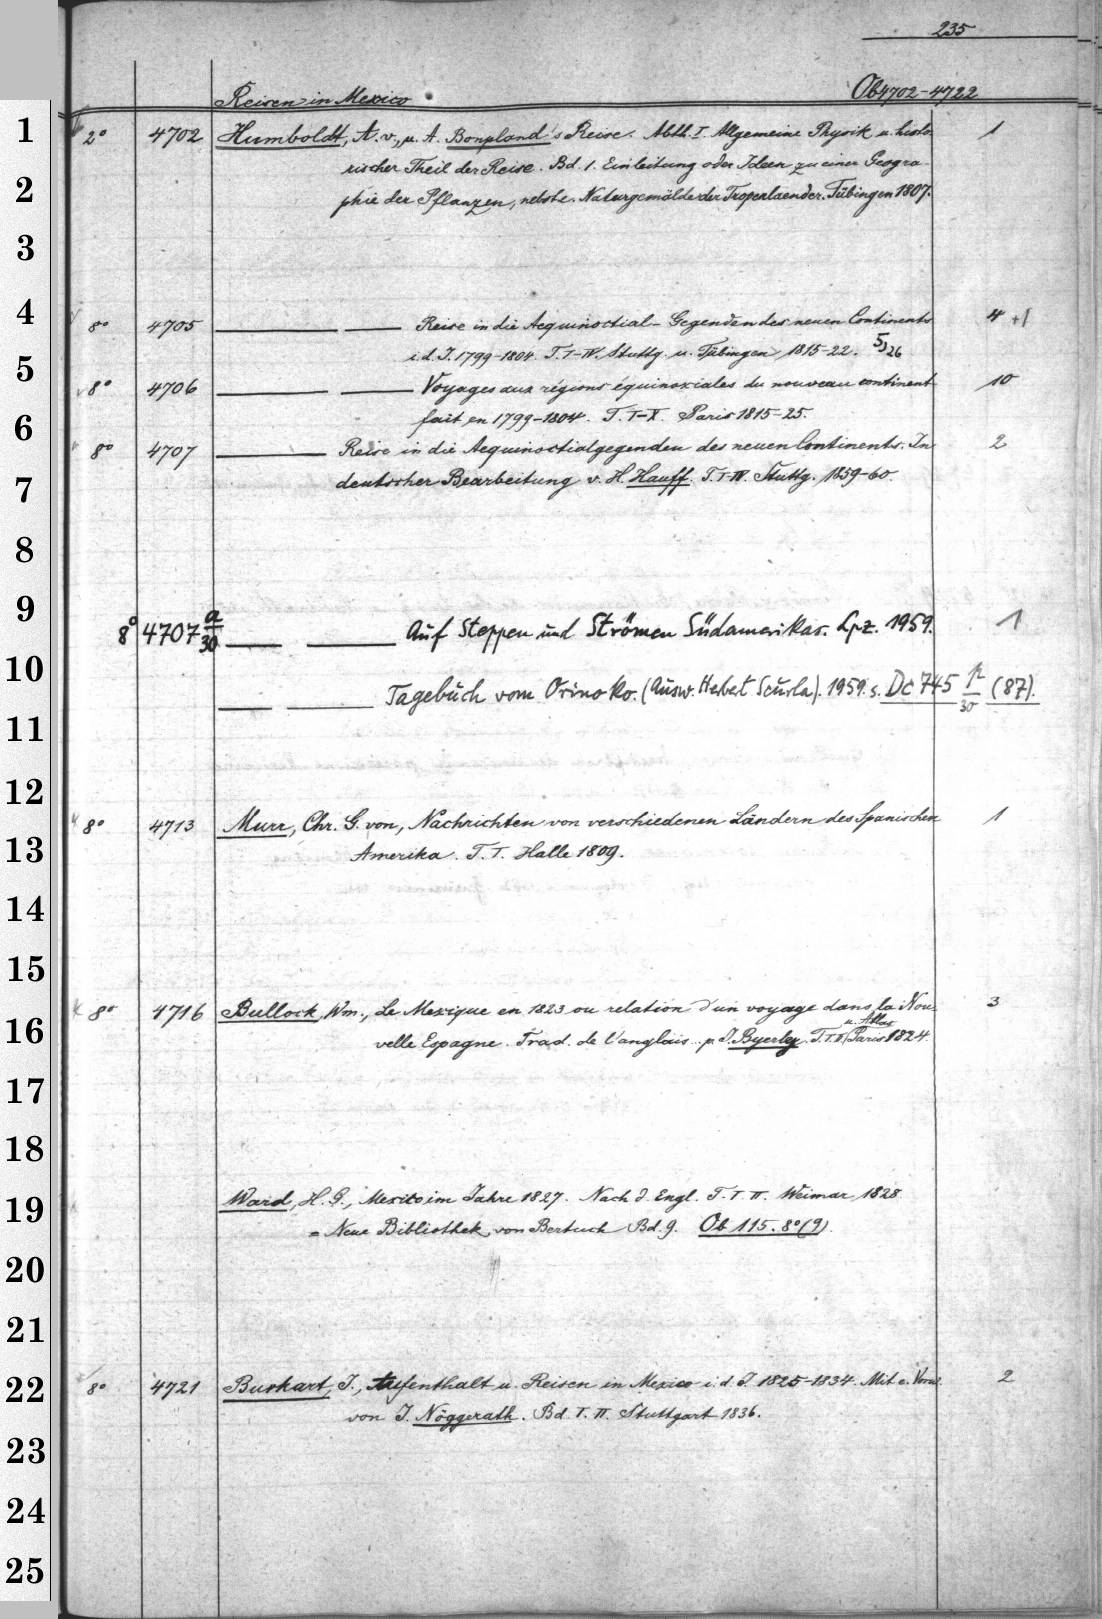 235
Reisen in Mexico Ob 4702-4722
1
2° 4702 Humboldt, A. v., u. A. Bonpland's Reise. Abth. I Allgemeine Physik u. histo- 1
rischer Theil der Reise. Bd. 1. Einleitung oder Ideen zu einer Geogra-
2
phie der Pflanzen, nebst e. Naturgemälde der Tropenlaender. Tübingen 1807.
3
4
8° 4705 Reise in die Aequinoctial-Gegenden des neuen Continents 4 +1
i. d. J. 1799-1804. T. I-IV. Stuttg. u. Tübingen 1815-22. 5) 26
5
8° 4706 Voyages aux régions équinoxiales du nouveau continent 10
fait en 1799-1804. T. I-X. Paris 1815-25.
6
8° 4707 Reise in die Aequinoctialgegenden des neuen Continents. In 2
7
deutscher Bearbeitung v. H. Hauff. T. I-IV. Stuttg. 1859-60.
8
9
8° 4707 a/30 Auf Steppen und Strömen Südamerikas. Lpz. 1959. 1
10
Tagebuch vom Orinoko. (Ausw. Hebert Scurla). 1959. s. Dc 745 p/30 (87).
11
12
8° 4713 Murr, Chr. G. von, Nachrichten von verschiedenen Ländern des Spanischen 1
13
Amerika. T. I. Halle 1809.
14
15
8° 4716 Bullock, Wm., Le Mexique en 1823 ou relation d'un voyage dans la Nou- 3
16
velle Espagne. Trad. de l'anglais p. J. Byerley. T. I. II u. Atlas Paris 1824.
17
18
Ward, H. G., Mexico im Jahre 1827. Nach d. Engl. T. I. II. Weimar 1828
19
= Neue Bibliothek von Bertuch Bd. 9. Ob 115. 8° (9).
20
21
22
8° 4721 Burkart, J., Aufenthalt u. Reisen in Mexico i. d. J. 1825-1834. Mit e. Vorw. 2
von J. Nöggerath. Bd. I. II. Stuttgart 1836.
23
24
25